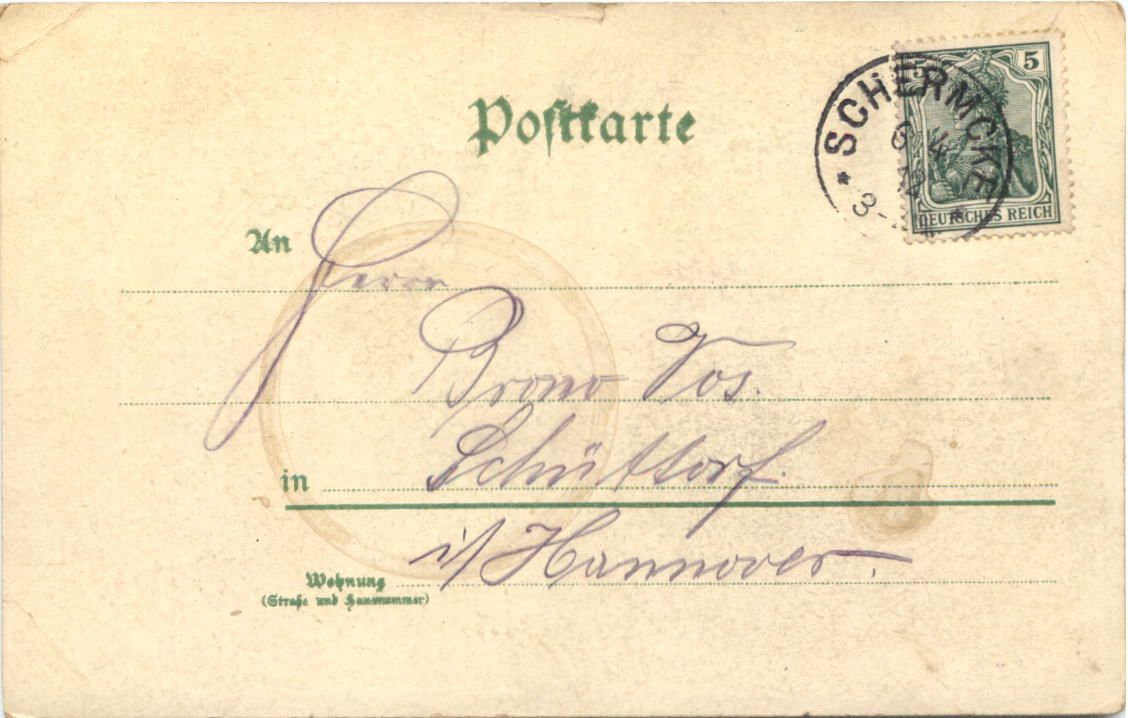 Postkarte
SCHERMCKE
6 4
12
3-
5 5
DEUTSCHES REICH
An
Herrn
Bruno Vos.
in Schüttorf.
i/ Hannover.
Wohnung
(Straße und Hausnummer)